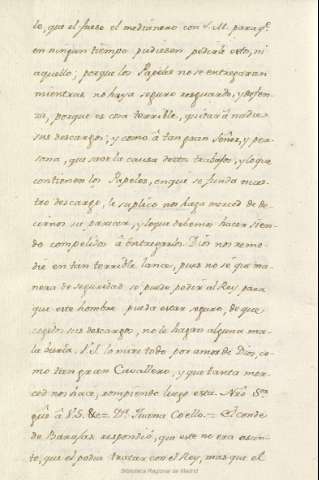 le, que el fuese el medianero con S. M. paraq.e
en ningun tiempo pudiesen pedirle esto, ni
aquello; porque los Papeles no se entregaran
mientras no haya seguro resguardo, y defen-
za, porque es cosa terrible, quitar â nadie
sus descargos; y como â tan gran Señor, y per-
sona, que save la causa destos trabajos, y lo que
contienen los Papeles, en que se funda nues-
tro descargo, le suplico nos haga merced de de-
cirnos su parecer, y lo que debemos hacer sien-
do compelidos â entregarlos. Dios nos reme-
die en tan terrible lance, pues no sé que ma-
nera de seguridad se puede pedir al Rey para
que este hombre pueda estar seguro, de que
cogidos sus descargos, no le hagan alguna ma-
la burla. V.S. lo mire todo por amor de Dios, co-
mo tan gran Cavallero, y que tanta mer-
ced nos hace, rompiendo luego esta. Nrô S.or
gûe â V.S. &c.= D.a Juana Coello.= El conde
de Barajas respondió, que este no era asun-
to, que el podia tratar con el Rey, mas que el
Biblioteca Regional de Madrid